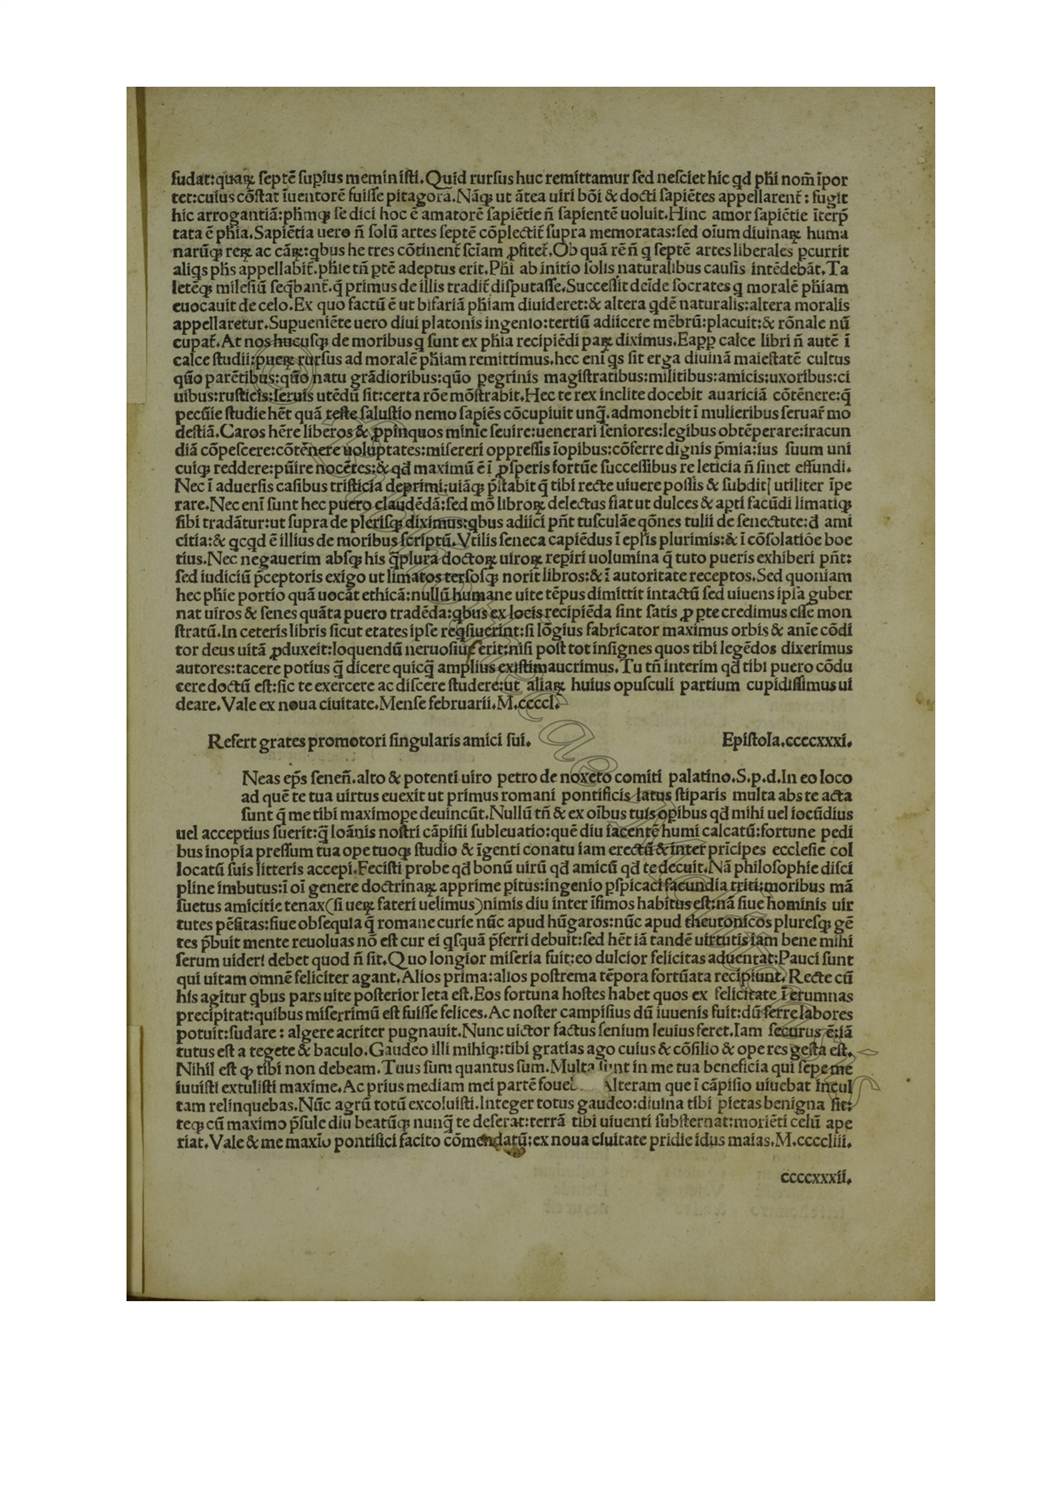 sudat:quaꝝ septē supius meministi.Quid rursus huc remittamur sed nesciet hic qd phi nom̄ īpor
tet:cuius cōstat īuentorē fuisse pitagorā.Nāqꝫ ut ātea uiri bōi & docti sapiētes appellarent̄: fugit
hic arrogantiā:phm̄qꝫ se dici hoc ē amatorē sapiētie ñ sapientē uoluit.Hinc amor sapiētie īterp̄
tata ē phia.Sapiētia uero ñ solū artes septē cōplectit̄ supra memoratas:sed oīum diuinaꝝ huma
narūqꝫ reꝝ ac cāꝝ:qbus he tres cōtinent̄ scīam ꝓfitet̄.Ob quā rēñ q septē artes liberales pcurrit
aliqs phs appellabit̄.phie tñ ptē adeptus erit.Phi ab initio solis naturalibus causis intēdebāt.Ta
letēqꝫ milesiū seq̄bant̄.q̄ primus de illis tradit̄ disputasse.Successit deīde socrates q moralē phiam
euocauit de celo.Ex quo factū ē ut bifariā phiam diuideret:& altera qdē naturalis:altera moralis
appellaretur.Supueniēte uero diui platonis ingenio:tertiū adiicere mēbrū:placuit:& rōnale nū
cupat̄.At nos hucusqꝫ de moribus q sunt ex phia recipiēdi paꝝ diximus.Eapp calce libri ñ autē ī
calce studii:pueꝝ rursus ad moralē phiam remittimus.hec eni qs sit erga diuinā maiestatē cultus
quō parētibus:quō natu grādioribus:quō pegrinis magistratibus:militibus:amicis:uxoribus:ci
uibus:rusticis:seruis utēdū sit:certa rōe mōstrabit.Hec te rex inclite docebit auariciā cōtēnere:q̄
pecūie studie hēt quā teste salustio nemo sapiēs cōcupiuit unq̄.admonebit ī mulieribus seruar̄ mo
destiā.Caros hēre liberos & ꝓpinquos minie seuire:uenerari seniores:legibus obtēperare:iracun
diā cōpescere:cōtēnere uoluptates:misereri oppressis īopibus:cōferre dignis p̄mia:ius suum uni
cuiqꝫ reddere:pūire nocētes:& qd maximū ē ī ꝓsperis fortūe successibus re leticia ñ sinet effundi.
Nec ī aduersis casibus tristicia deprimi:uiāqꝫ p̄stabit q̄ tibi recte uiuere possis & subdit] utiliter īpe
rare.Nec enī sunt hec puero claudēdā:sed mō̄ libroꝝ delectus fiat ut dulces & apti facūdi limatiqꝫ
sibi tradātur:ut supra de plerisqꝫ diximus:qbus adiici pñt tusculāe qōnes tulii de senectute:d̄ ami
citia:& qcqd ē illius de moribus scriptū.Vtilis seneca capiēdus ī eplis plurimis:& ī cōsolatiōe boe
tius.Nec negauerim absqꝫ his q̄plura doctoꝝ uiroꝝ repiri uolumina q̄ tuto pueris exhiberi pñt:
sed iudiciū p̄ceptoris exigo ut limatos tersosqꝫ norit libros:& ī autoritate receptos.Sed quoniam
hec phie portio quā uocāt ethicā:nullū humane uite tēpus dimittit intactū sed uiuens ipsa guber
nat uiros & senes quāta puero tradēda:qbus ex locis recipiēda sint satis ꝓ pte credimus esse mon
stratū.In ceteris libris sicut etates ipse reqsiuerint:si lōgius fabricator maximus orbis & anie cōdi
tor deus uitā ꝓduxeit:loquendū neruosius erit:nisi post tot insignes quos tibi legēdos dixerimus
autores:tacere potius q̄ dicere quicq̄ amplius existimaucrimus.Tu tñ interim qd tibi puero cōdu
cere doctū est:sic te exercere ac discere studere:ut aliaꝝ huius opusculi partium cupidissimus ui
deare.Vale ex noua ciuitate.Mense februarii.M.ccccl.
Refert grates promotori singularis amici sui. Epistola.ccccxxxi.
Neas ep̄s senen̄.alto & potenti uiro petro de noxeto comiti palatino.S.p.d.In eo loco
ad quē te tua uirtus euexit ut primus romani pontificis latus stiparis multa abs te acta
sunt q̄ me tibi maximope deuincūt.Nullū tñ & ex oībus tuis opibus qd mihi uel iocūdius
uel acceptius fuerit:q̄ ioānis nostri cāpisii subleuatio:quē diu iacentē humi calcatū:fortune pedi
bus inopia pressum tua ope tuoqꝫ studio & īgenti conatu iam erectū & inter prīcipes ecclesie col
locatū suis litteris accepi.Fecisti probe qd bonū uirū qd amicū qd te decuit.Nā philosophie disci
pline imbutus:ī oī genere doctrinaꝝ apprime pitus:ingenio pspicaci facundia triti:moribus mā
suetus amicitie tenax(si ueꝝ fateri uelimus)nimis diu inter īfimos habitus est:nā siue hominis uir
tutes pēsitas:siue obsequia q̄ romane curie nūc apud hūgaros:nūc apud theutonicos pluresqꝫ gē
tes p̄buit mente reuoluas nō est cur ei qsquā p̄ferri debuit:sed hēt iā tandē uirtutis iam bene mihi
serum uideri debet quod ñ sit.Quo longior miseria fuit:eo dulcior felicitas aduentat:Pauci sunt
qui uitam omnē feliciter agant.Alios prima:alios postrema tēpora fortūata recipiunt.Recte cū
his agitur qbus pars uite posterior leta est.Eos fortuna hostes habet quos ex felicitate ī erumnas
precipitat:quibus miserrimū est fuisse felices.Ac noster campisius dū iuuenis fuit:dū ferre labores
potuit:sudare: algere acriter pugnauit.Nunc uictor factus senium leuius feret.Iam securus ē:iā
tutus est a tegete & baculo.Gaudeo illi mihiqꝫ:tibi gratias ago cuius & cōsilio & ope res gesta est.
Nihil est qꝫ tibi non debeam.Tuus sum quantus sum.Multa sunt in me tua beneficia qui sepe me
iuuisti extulisti maxime.Ac prius mediam mei partē foue Alteram que ī cāpisio uiuebat incul
tam relinquebas.Nūc agrū totū excoluisti.Integer totus gaudeo:diuina tibi pietas benigna sit:
teqꝫ cū maximo p̄sule diu beatūqꝫ nunq̄ te deserat:terrā tibi uiuenti substernat:moriēti celū ape
riat.Vale & me maxio pontifici facito cōmendatū:ex noua ciuitate pridie idus maias.M.ccccliii.
ccccxxxii.